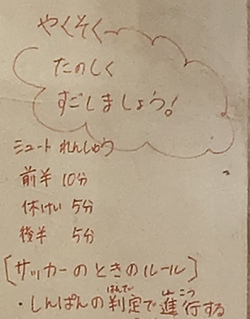 やくそく～
たのしく
すごしましょう!
シュートれんしゅう
前半 10分
休けい 5分
後半 5分
[サッカーのときのルール]
・しんぱんの判定で進行する